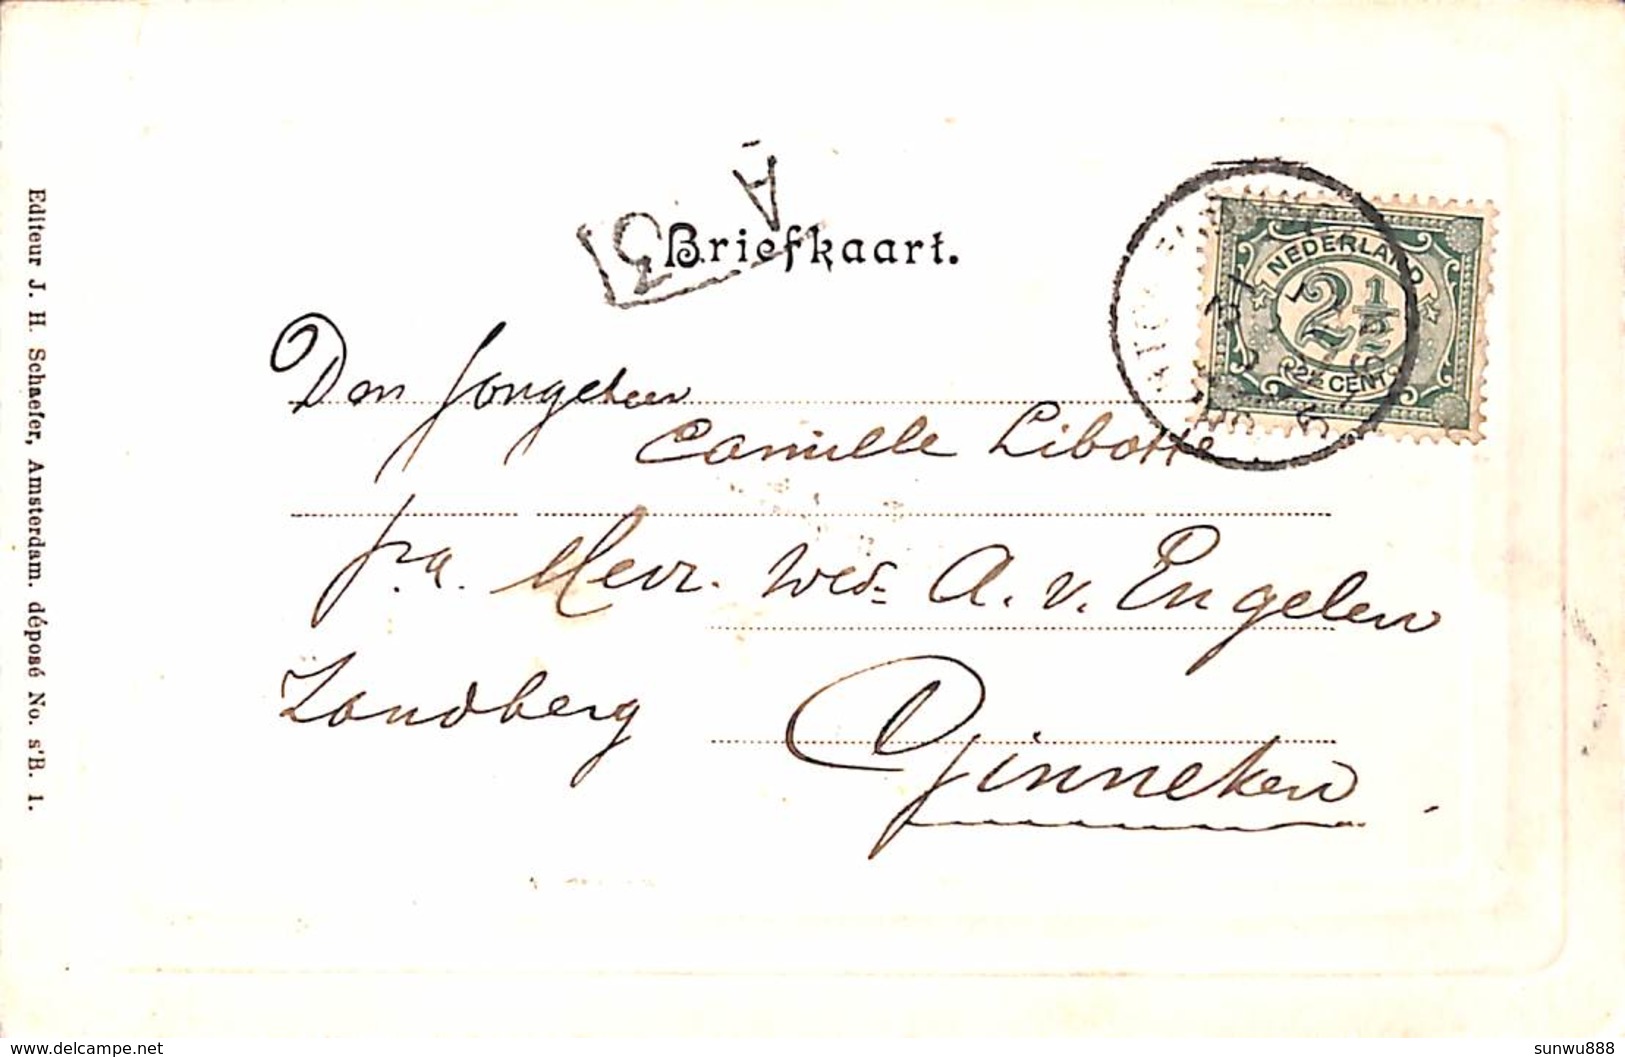 Briefkaart.
A
3
NEDERLAND
2½
2½ CENT
Den Jongeheer
Camille Libotte
p.a. Mevr. Wed= A. v. Engelen
Zandberg
Ginneken.
Editeur J. H. Schaefer, Amsterdam. déposé No. s'B. 1.
www.delcampe.net
sunwu888